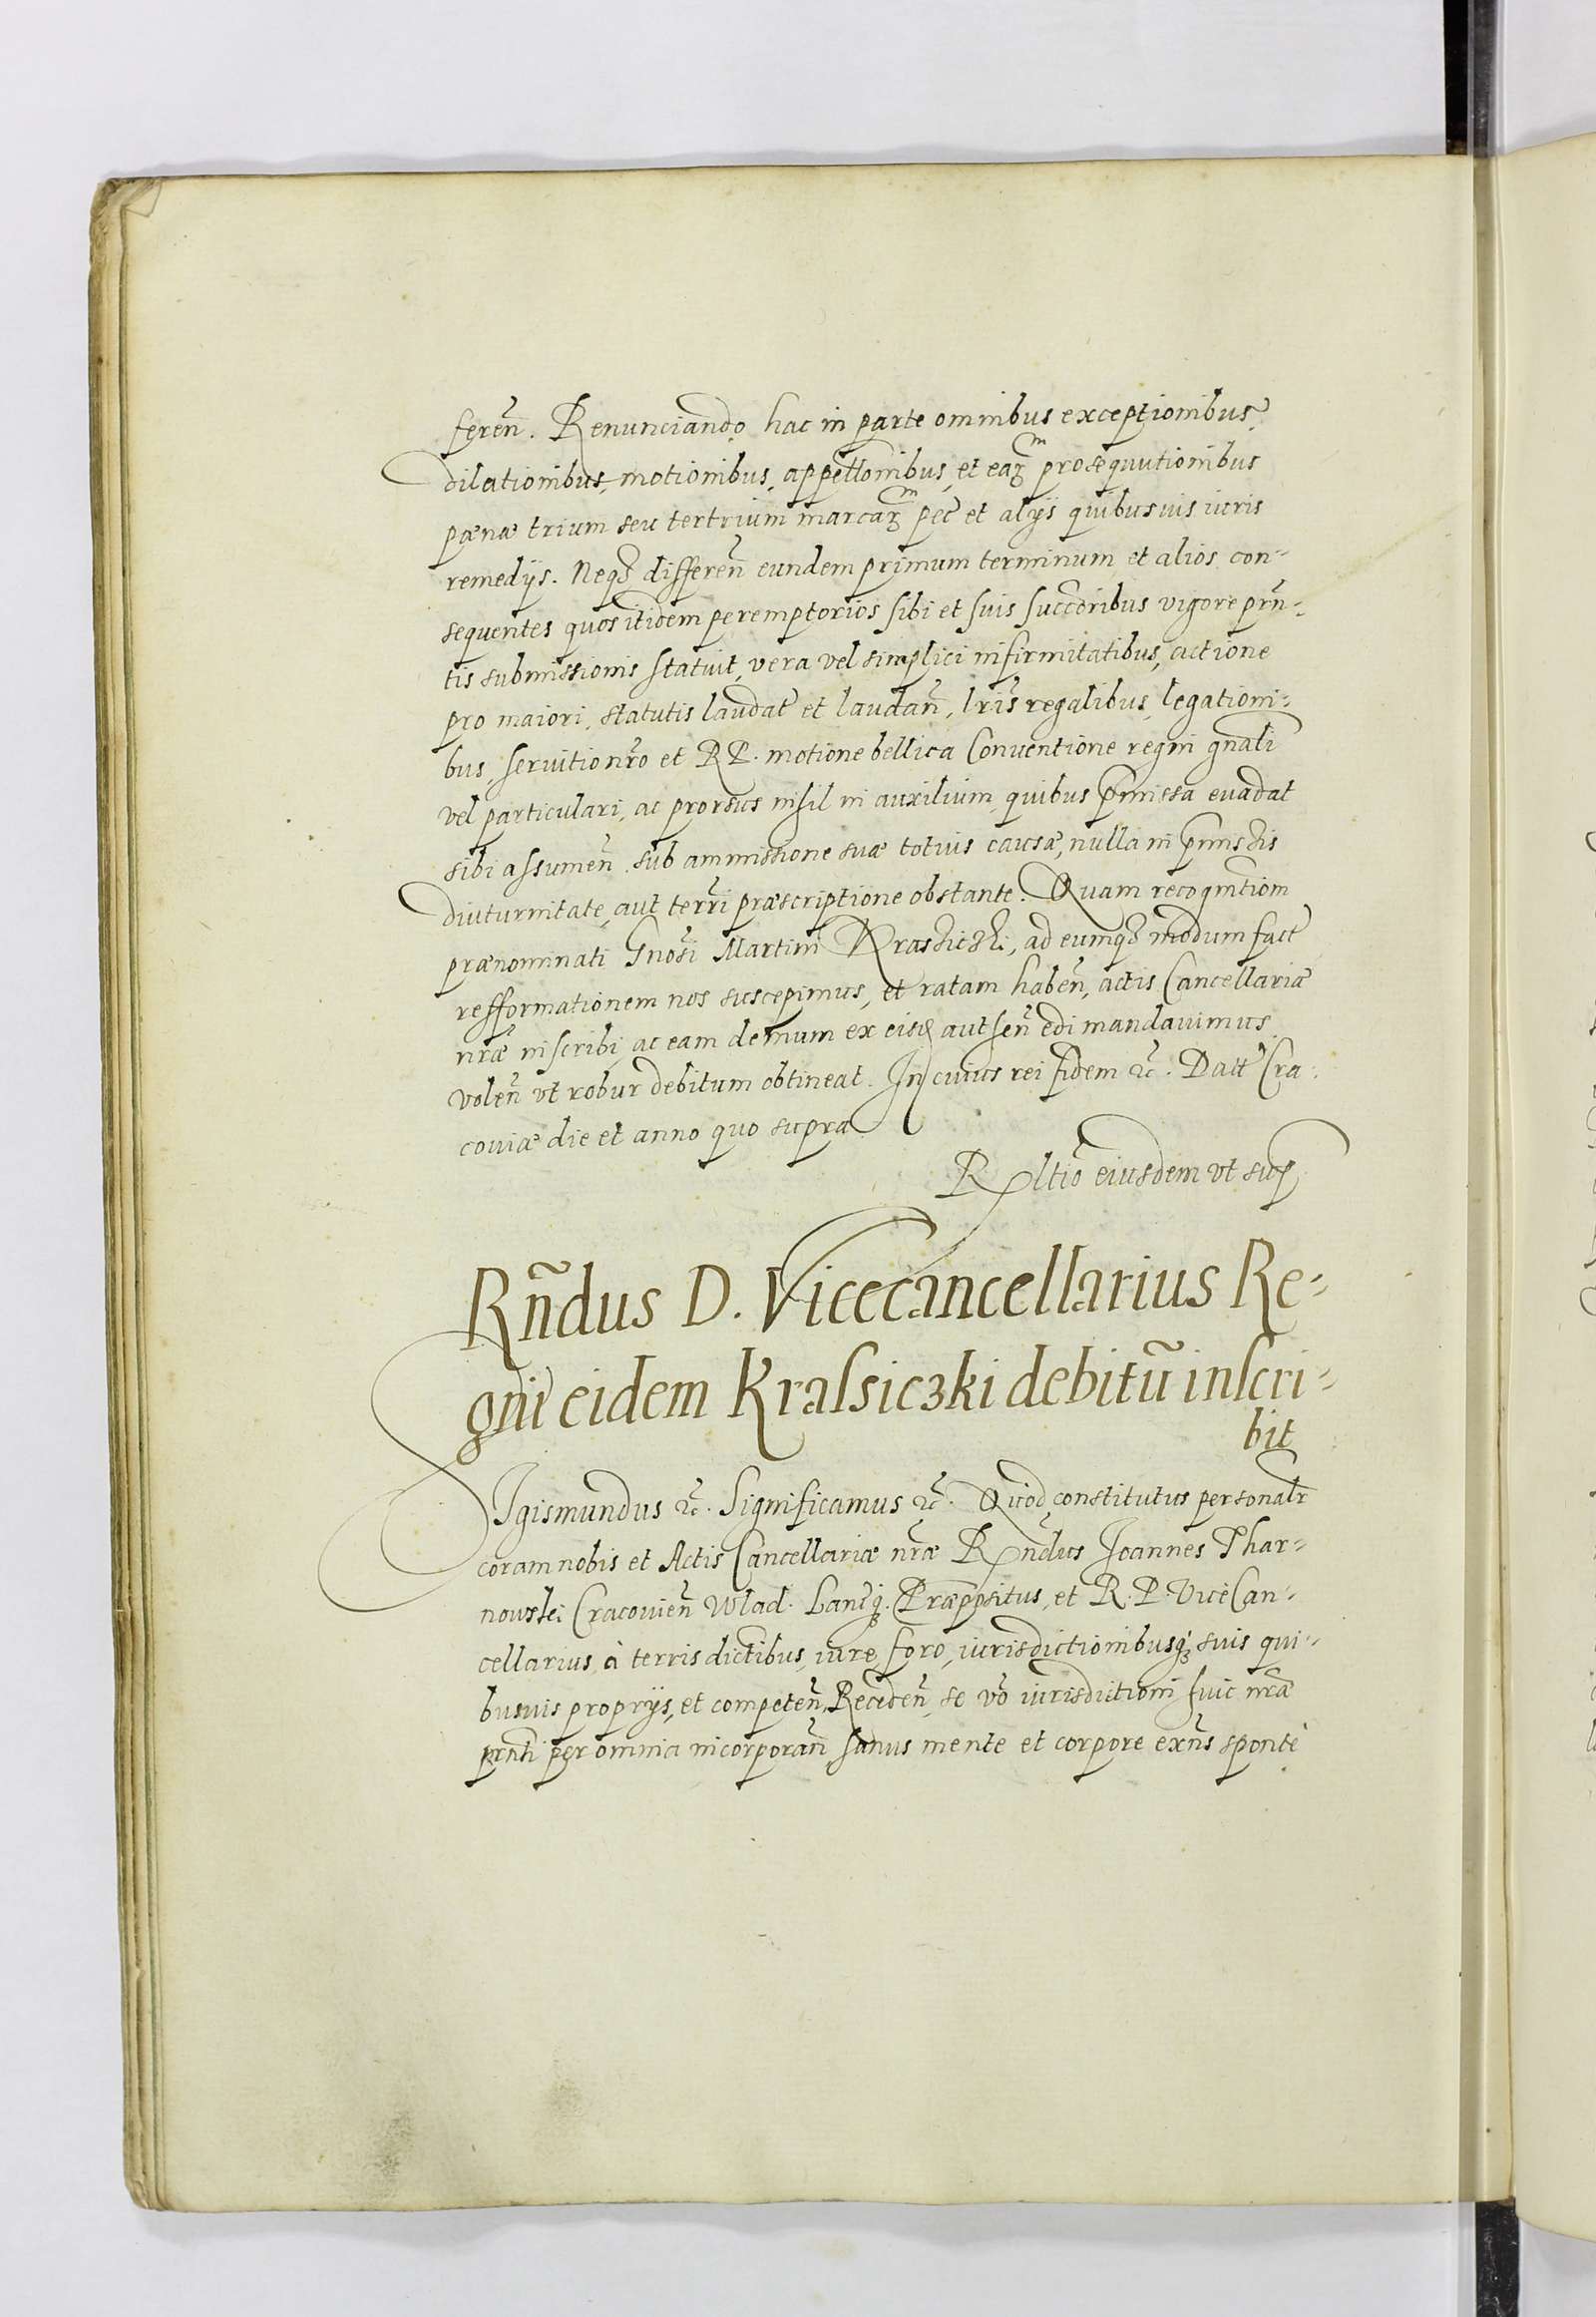 feren̄. Renunciando hac in parte omnibus exceptionibus,
dilationibus, motionibus, appell̄onibus, et eaꝝm prosequutionibus
pænæ trium seu tertrium marcaꝝm pec̄ et alÿs quibusuis iuris
remedÿs. Neqꝫ differen̄ eundem primum terminum et alios con-
sequentes quos itidem peremptorios sibi et suis succōribus vigore prn̄-
tis submissionis statuit, vera vel simplici infirmitatibus, actione
pro maiori, statutis laudat̄ et laudan̄, lr̄is regalibus, legationi-
bus, seruitio nr̄o et R P. motione bellica Conuentione regni gn̄ali
vel particulari, ac prorsus nihil in auxilium quibus p̄missa euadat
sibi assumen̄ sub ammissione suæ totius causæ, nulla in p̄missis
diuturnitate, aut terr̄i præscriptione obstante. Quam recogn̄tiom
prænominati Gn̄osi Martini Krasiczki, ad eumqꝫ modum fact̄
refformationem nos suscepimus, et ratam haben̄, actis Cancellariæ
nr̄æ inscribi ac eam demum ex eisd̄ autħen̄ edi mandauimus
volen̄ vt robur debitum obtineat. In cuius rei fidem ꝛc̄. Datt Cra-
couiæ die et anno quo supra
R̄ltio eiusdem vt sup̄
Rn̄dus D. Vicecancellarius Re-
gni eidem Krasiczki debitū inscri-
bit
SIgismundus ꝛc̄. Significamus ꝛc̄. Quod constitutus personalr̄
coram nobis et Actis Cancellariæ nr̄æ Rn̄dus Joannes Thar-
nowski Cracouien̄ Wlad. Lanc̄qꝫ. Præpositus, et R. P. ViceCan-
cellarius, à terris dictibus, iure, foro, iurisdictionibusqꝫ suis qui-
busuis proprÿs, et competen̄, Receden̄, se vō iurisdictioni huic nr̄æ
prn̄ti per omnia incorporan̄ sanus mente et corpore exn̄s spontè